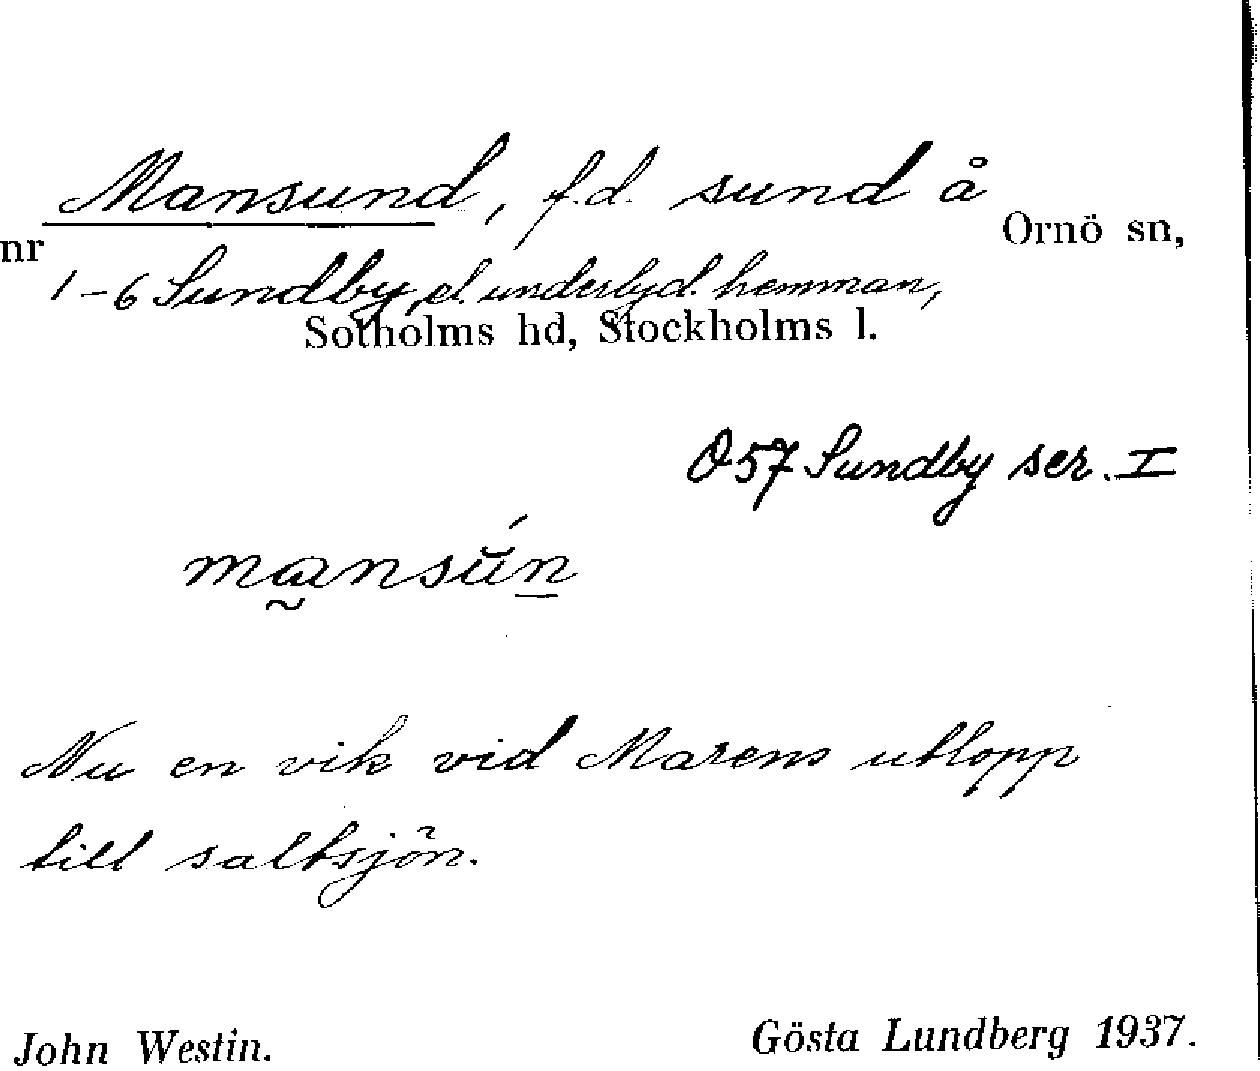 Mansund, f.d. sund å
Ornö sn,
nr
1-6 Sundby, el. underlyd. hemman,
Sotholms hd, Stockholms l.
Ö 57 Sundby ser. I
Nu en vik vid Marens utlopp
till saltsjön.
John Westin.
Gösta Lundberg 1937.